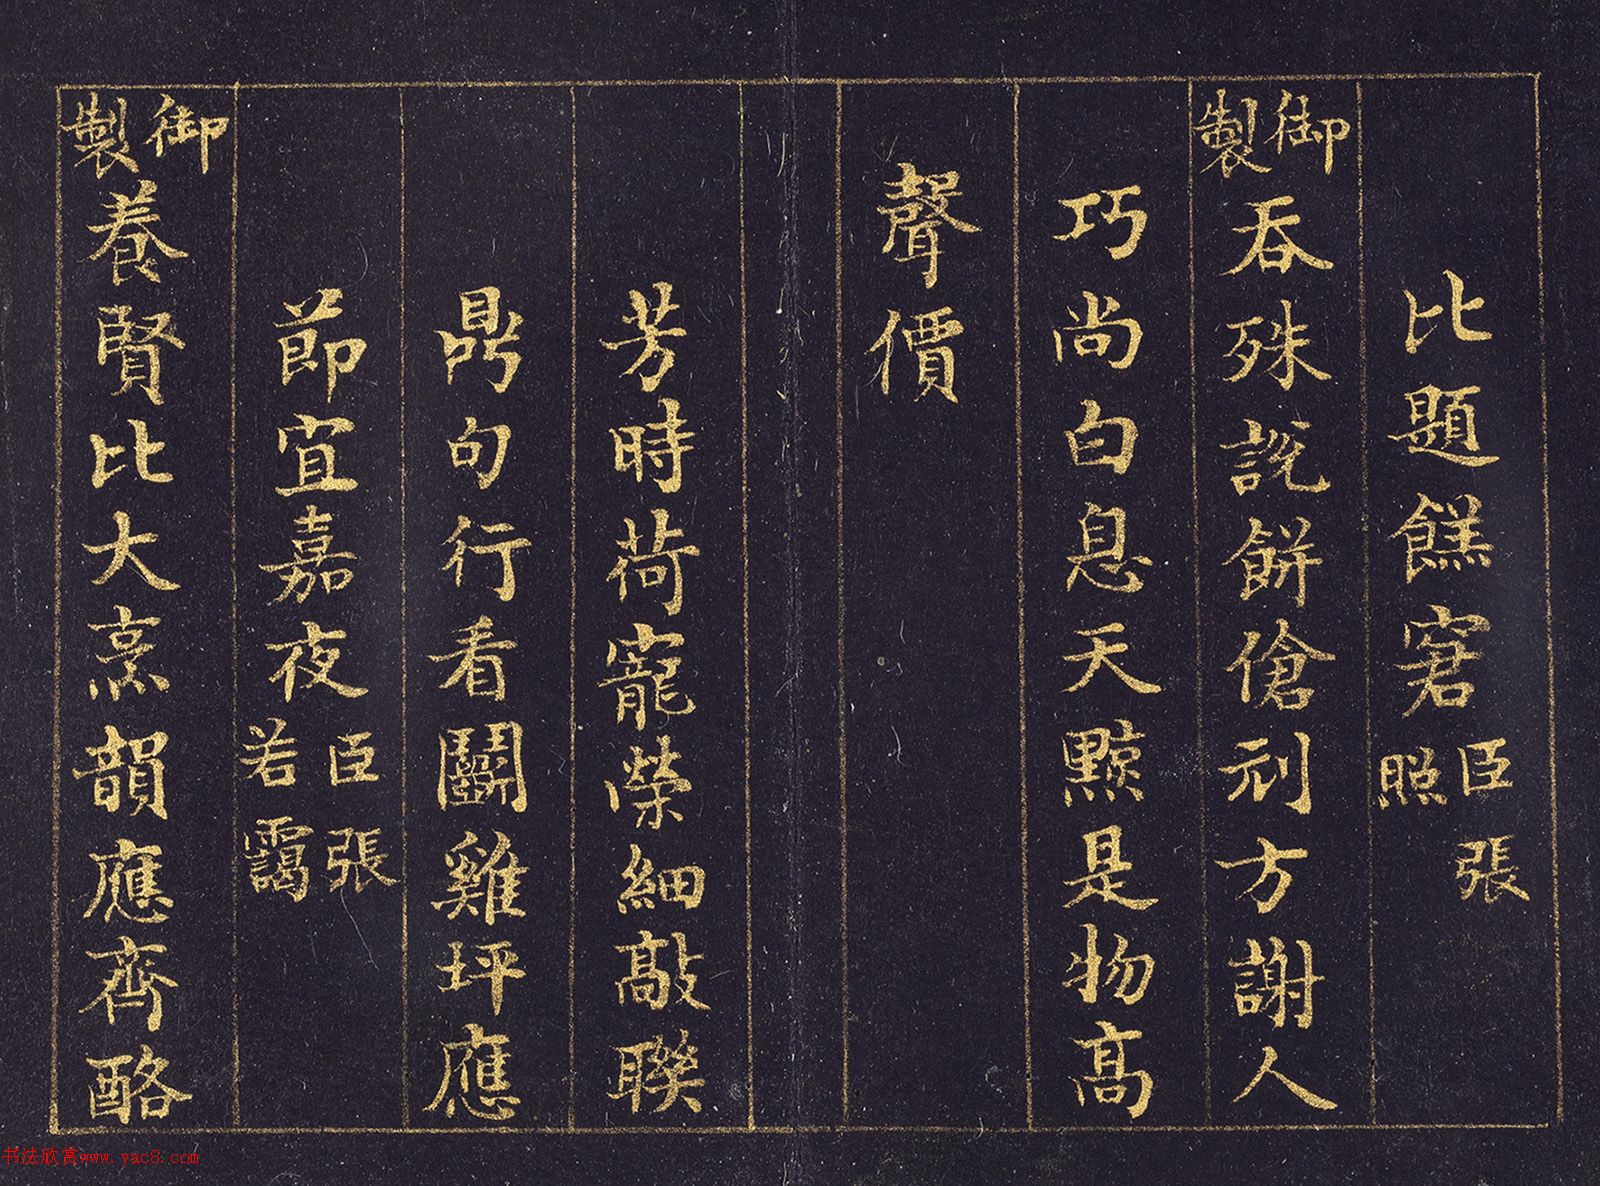 比題餻窘臣張照
御製吞殊說餅傖刓方謝人
巧尚白息天黥是物高
聲價
芳時荷寵榮細敲聯
鼎句行看鬭雞坪應
節宜嘉夜臣張若靄
御製養賢比大烹韻應齊酪
书法欣赏www.yac8.com